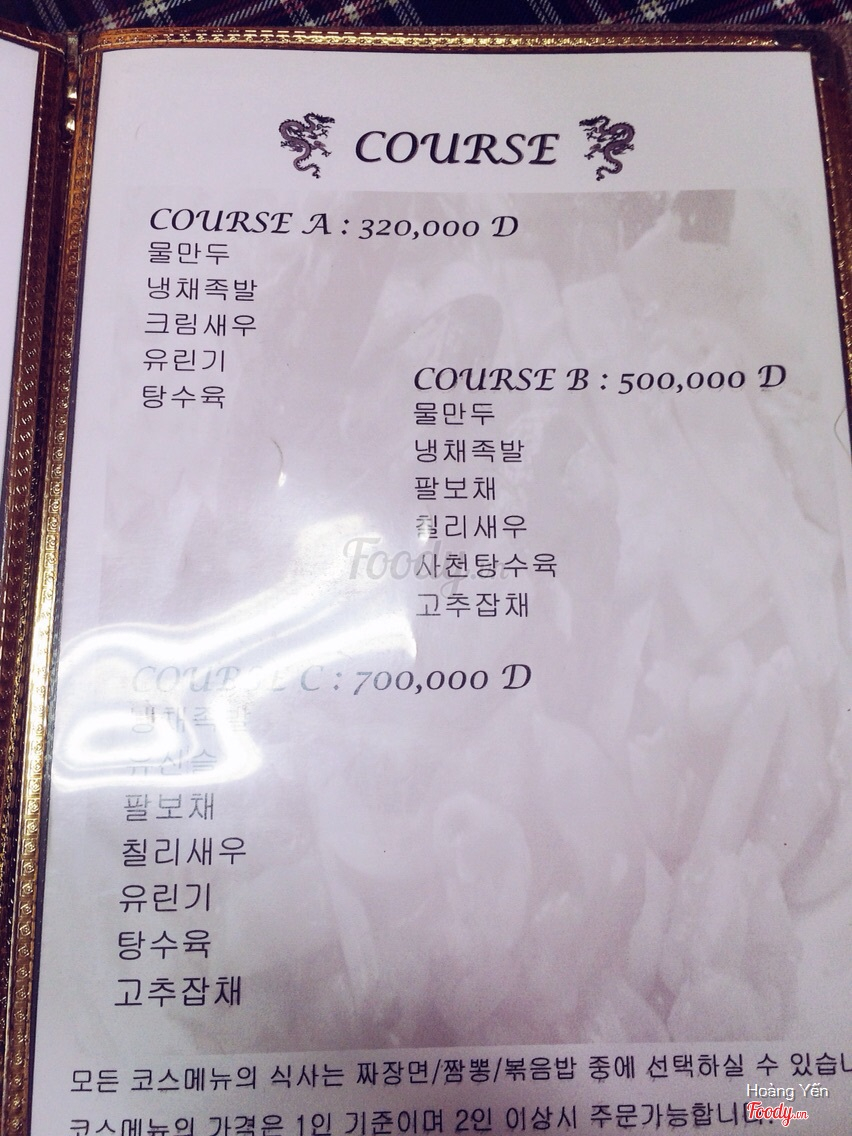 COURSE
COURSE A : 320,000 D
물만두
냉채족발
크림새우
유린기
탕수육
COURSE B : 500,000 D
물만두
냉채족발
팔보채
칠리새우
사천탕수육
고추잡채
Foody.vn
COURSE C : 700,000 D
냉채족발
유산슬
팔보채
칠리새우
유린기
탕수육
고추잡채
모든 코스메뉴의 식사는 짜장면/짬뽕/볶음밥 중에 선택하실 수 있습니
코스메뉴의 가격은 1인 기준이며 2인 이상시 주문가능합니다.
Hoàng Yến
Foody.vn